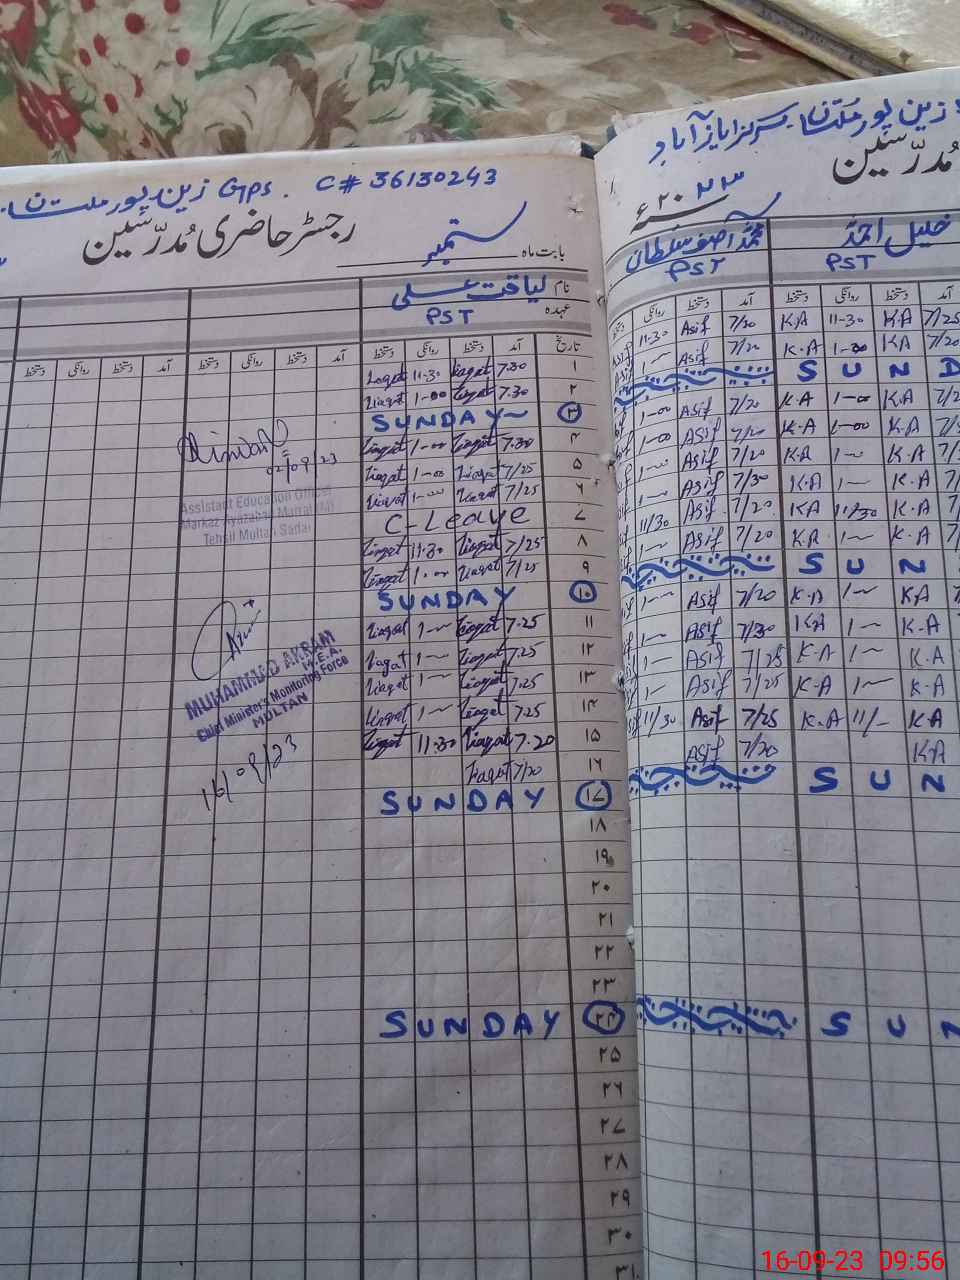 زین پور ملتان Gps . C# 36130243
رجسٹر حاضری مُدرّسین
بابت ماہ ستمبر
نام لیاقت علی
عہدہ PST
تاریخ آمد دستخط روانگی دستخط آمد دستخط روانگی دستخط آمد دستخط روانگی دستخط
۱ 7.30 Liaqat 11-30 Liaqat
۲ 7.30 Liaqat 1-00 Liaqat
۳ SUNDAY
۴ 7.30 Liaqat 1-00 Liaqat
۵ 7/25 Liaqat 1-00 Liaqat
۶ 7/25 Liaqat 1-00 Liaqat
۷ C-Leave
۸ 7/25 Liaqat 11.30 Liaqat
۹ 7/25 Liaqat 1.00 Liaqat
۱۰ SUNDAY
۱۱ 7.25 Liaqat 1- Liaqat
۱۲ 7.25 Liaqat 1- Liaqat
۱۳ 7.25 Liaqat 1- Liaqat
۱۴ 7.25 Liaqat 1- Liaqat
۱۵ 7.20 Liaqat 11.30 Liaqat
۱۶ 7/20 Liaqat
۱۷ SUNDAY
۱۸
۱۹
۲۰
۲۱
۲۲
۲۳
۲۴ SUNDAY
۲۵
۲۶
۲۷
۲۸
۲۹
۳۰
۳۱
02/09/23
Assistant Education Officer
Markaz Ayazabad Marral (M)
Tehsil Multan Sadar
MUHAMMAD AKRAM
M.E.A.
Chief Minister's Monitoring Force
MULTAN
16/09/23
زین پور ملتان مرکز ایاز آباد
مُدرّسین
۲۰۲۳ء
محمد آصف سلطان
PST
خلیل احمد
PST
آمد دستخط روانگی دستخط آمد دستخط روانگی
7/20 Asif 11-30 7/25 K.A 11-30 K.A
7/20 Asif 1- 7/20 KA 1-00 K.A
S U N D
7/20 Asif 1-00 K.A 1-00 K.A
7/20 Asif 1-00 K.A 1-00 K.A
7/20 Asif 1-00 K.A 1-00 K.A
7/30 Asif 1- K.A 1- K.A
7/20 Asif 11/30 K.A 11/30 K.A
7/20 Asif 1- K.A 1- K.A
S U N
7/20 Asif 1- KA 1- K.A
7/30 Asif 1- K.A 1- KA
7/25 Asif 1- K.A 1- K.A
7/25 Asif 1- K.A 1- K.A
7/25 Asif 11/30 KA 11/- K.A
7/20 Asif KA
S U N
S U N
16-09-23 09:56